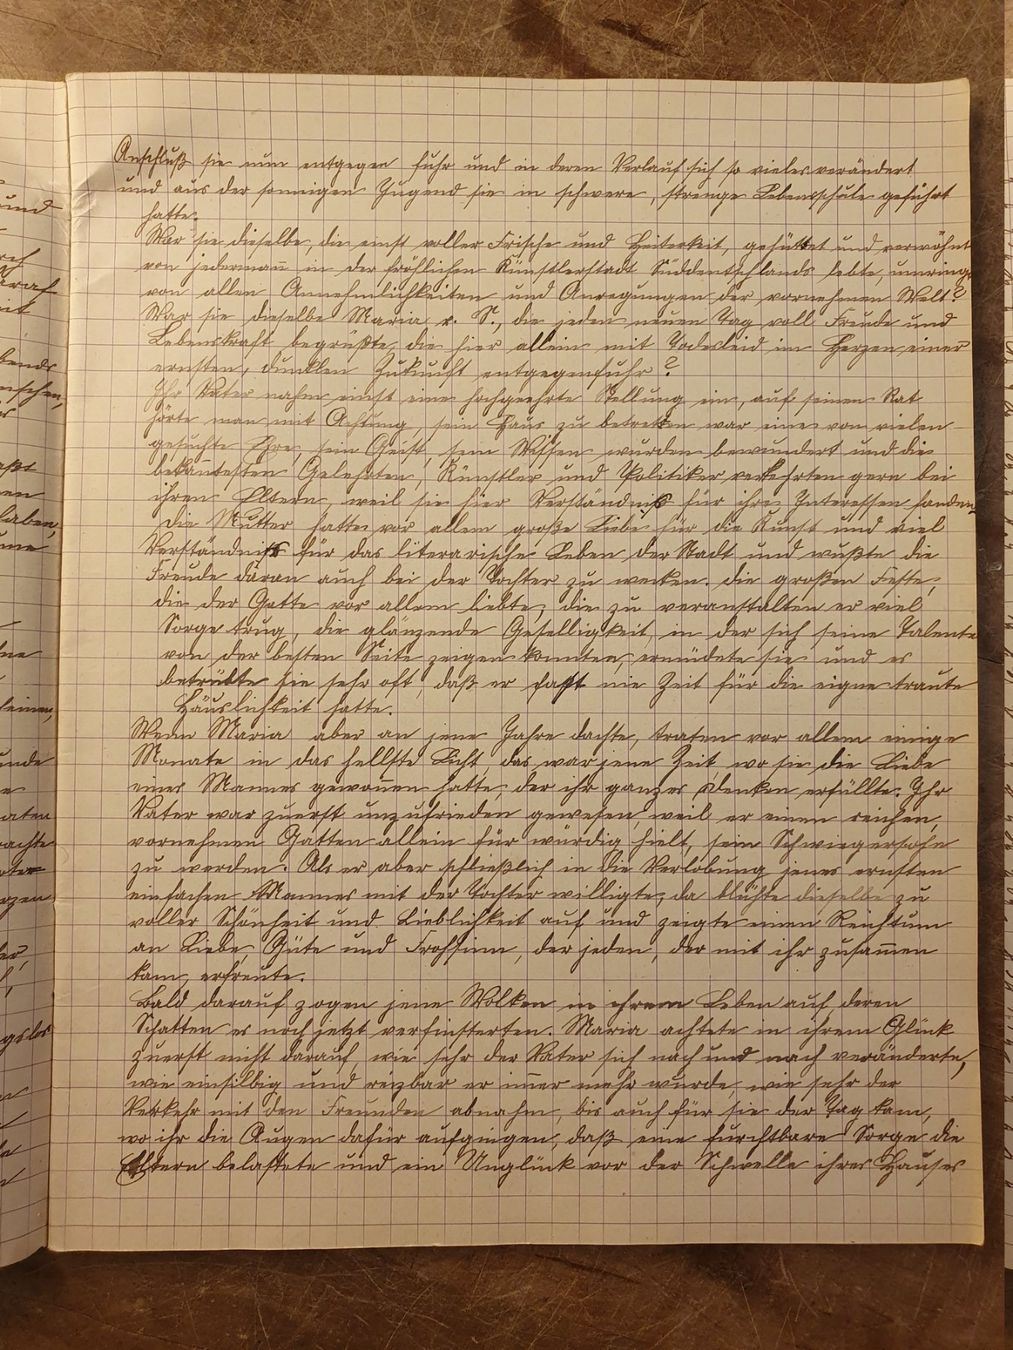 Anschluß sie nun entgegen fuhr und in deren Verlauf sich so vieles verändert
und aus der sonnigen Jugend sie in schwere, strenge Lebensschule geführt
hatte.
War sie dieselbe, die einst voller Frische und Heiterkeit, gehütet und verwöhnt
von jedermann in der fröhlichen Künstlerstadt Süddeutschlands lebte, umringt
von allen Annehmlichkeiten und Anregungen der vornehmen Welt?
War sie dieselbe Maria v. S., die jeden neuen Tag voll Freude und
Lebenskraft begrüßte, die hier allein mit Todesleid im Herzen einer
ernsten, dunklen Zukunft entgegenfuhr?
Ihr Vater nahm einst eine hochgeehrte Stellung ein, auf seinen Rat
hörte man mit Achtung, sein Haus zu betreten war eine von vielen
gesuchte Ehre, sein Geist, sein Wissen wurden bewundert und die
bekantesten Gelehrten, Künstler und Politiker verkehrten gern bei
ihren Eltern, weil sie hier Verständniß für ihre Interessen fanden.
Die Mutter hatte vor allem große Liebe für die Kunst und viel
Verständniß für das literarische Leben der Stadt und wußte die
Freude daran auch bei der Tochter zu wecken. Die großen Feste,
die der Gatte vor allem liebte, die zu veranstalten er viel
Sorge trug, die glänzende Geselligkeit, in der sich seine Talente
von der besten Seite zeigen konnten, ermüdete sie und es
betrübte sie sehr oft, daß er fast nie Zeit für die eigne traute
Häuslichkeit hatte.
Wenn Maria aber an jene Jahre dachte, traten vor allem einige
Monate in das hellste Licht, das war jene Zeit, wo sie die Liebe
eines Mannes gewonnen hatte, der ihr ganzes Denken erfüllte. Ihr
Vater war zuerst unzufrieden gewesen, weil er einen reichen,
vornehmen Gatten allein für würdig hielt, sein Schwiegersohn
zu werden. Als er aber schließlich in die Verlobung jenes ernsten
einfachen Mannes mit der Tochter willigte, da blühte dieselbe zu
voller Schönheit und Lieblichkeit auf und zeigte einen Reichtum
an Liebe, Güte und Frohsinn, der jeden, der mit ihr zusammen
kam, erfreute.
Bald darauf zogen jene Wolken in ihrem Leben auf, deren
Schatten es noch jetzt verfinsterten. Maria achtete in ihrem Glück
zuerst nicht darauf, wie sehr der Vater sich nach und nach veränderte,
wie einsilbig und reizbar er immer mehr wurde, wie sehr der
Verkehr mit den Freunden abnahm, bis auch für sie der Tag kam,
wo ihr die Augen dafür aufgingen, daß eine furchtbare Sorge die
Eltern belastete und ein Unglück vor der Schwelle ihres Hauses